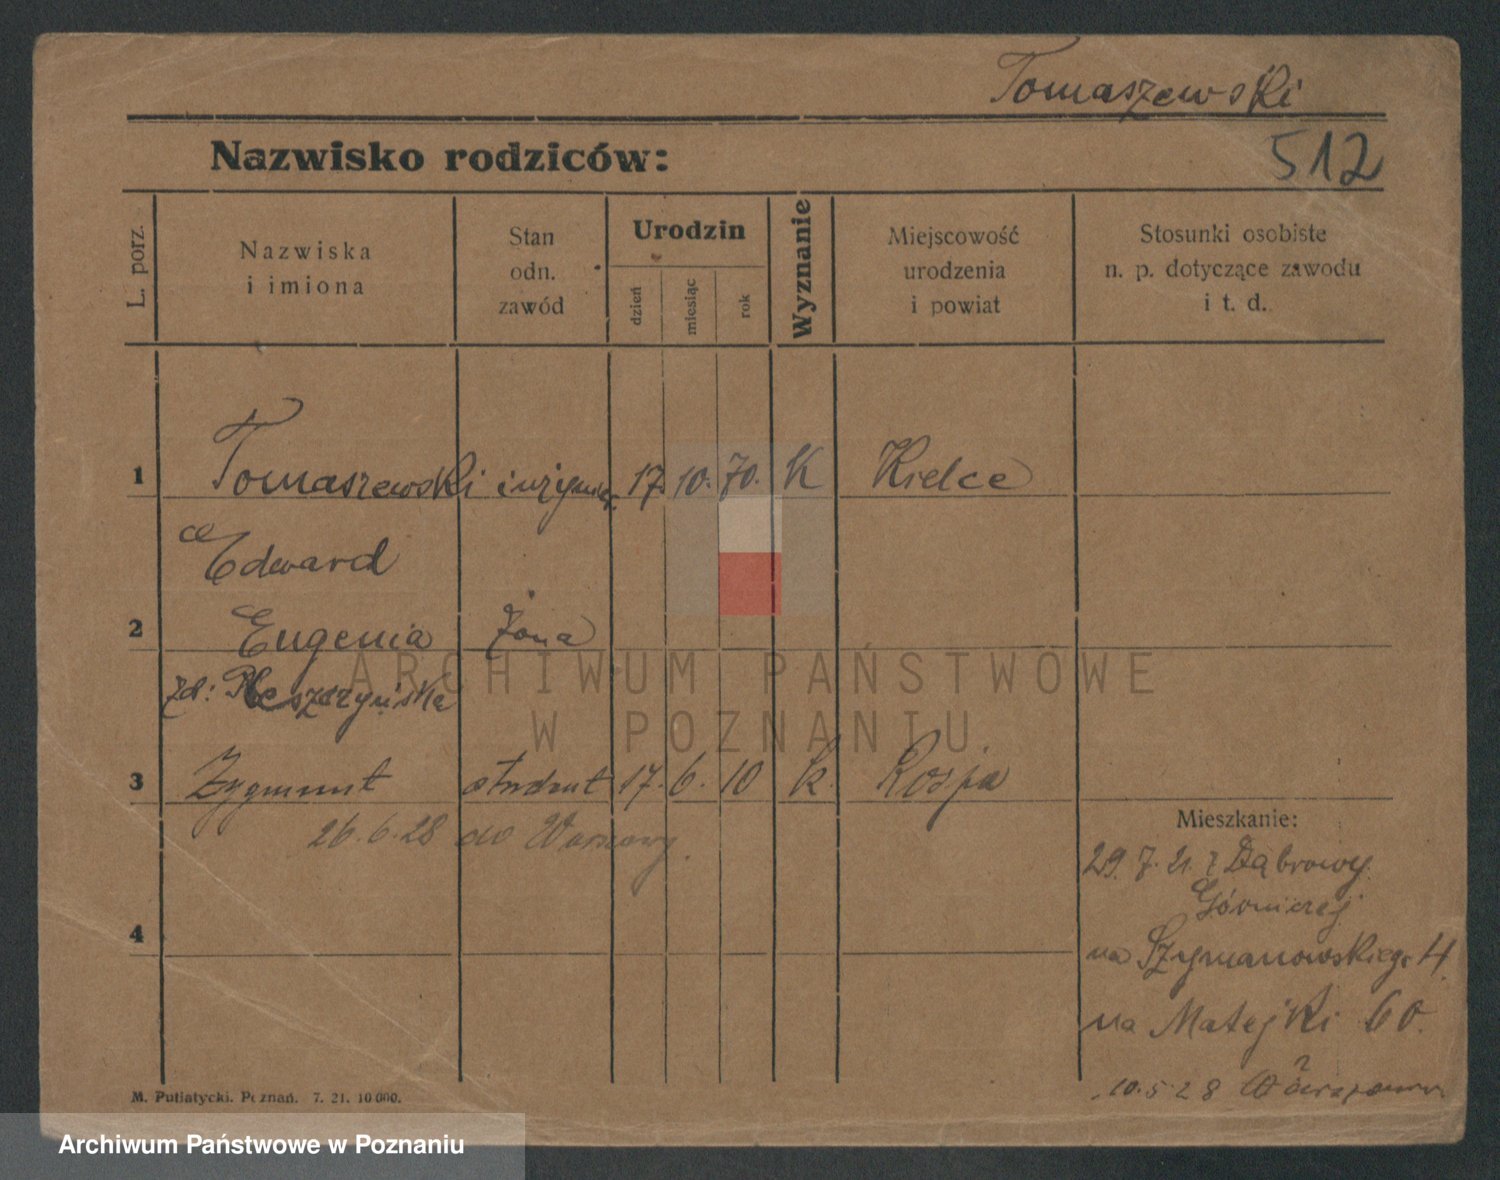 Tomaszewski
512
Nazwisko rodziców:
L. porz.
Nazwiska
i imiona
Stan
odn.
zawód
Urodzin
dzień
miesiąc
rok
Wyznanie
Miejscowość
urodzenia
i powiat
Stosunki osobiste
n. p. dotyczące zawodu
i t. d.
1 Tomaszewski 17. 10. 70. K Kielce
Edward
2 Eugenia żona
zd:
3 Zygmunt student 17. 6. 10 k. Rosja
26.6.28 do Warszawy.
4
Mieszkanie:
29.7.21. z Dąbrowy
Górniczej
na Szymanowskiego 4.
na Matejki 60.
10.5 28
M. Putiatycki. Poznań. 7. 21. 10 000.
ARCHIWUM PAŃSTWOWE
W POZNANIU
Archiwum Państwowe w Poznaniu